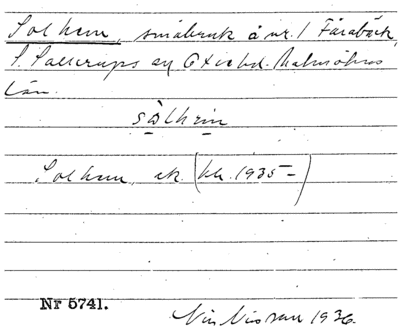 Solhem, småbruk å nr. 1 Fårabäck,
S. Sallerups sn Oxie hd. Malmöhus
län.
sòlhèm
Solhem, ek (kk. 1935–)
Nr 5741.
Nils Nilsson 1936.